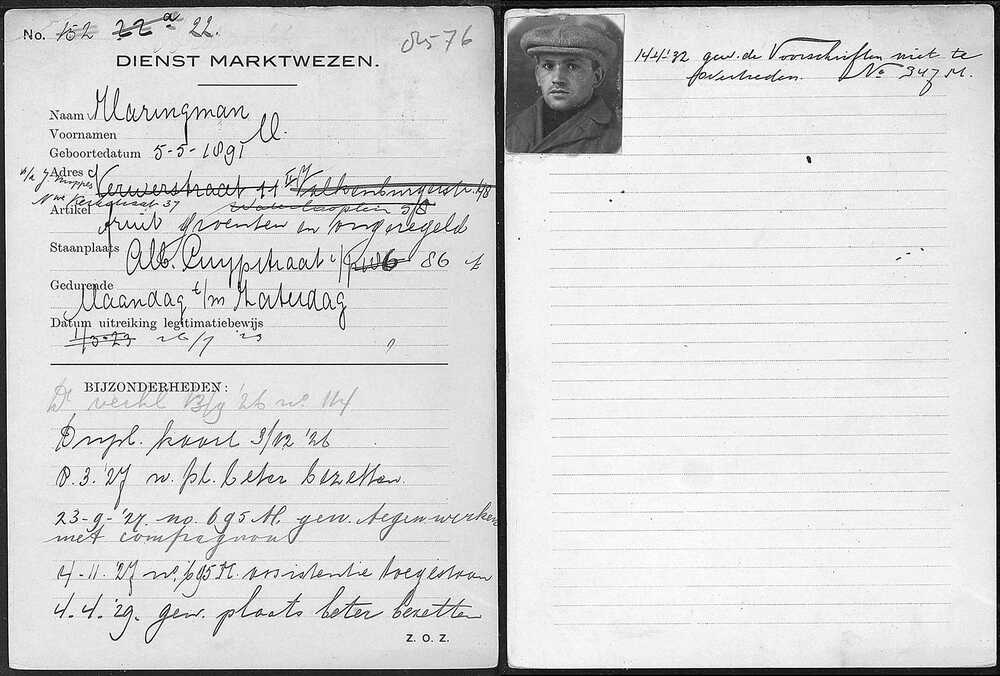 No. 152 22a 22.
8576
DIENST MARKTWEZEN.
Naam Maringman
Voornamen M.
Geboortedatum 5-5-1891
Adres Verwerstraat 11 Valkenburgerstr.
Nwe Kerkstraat 37 Waterlooplein 58
Artikel fruit groenten en ongeregeld
Staanplaats Alb. Cuypstraat 86
Gedurende Maandag t/m Zaterdag
Datum uitreiking legitimatiebewijs
1/3-23 26/7 '23
BIJZONDERHEDEN:
D. verkl 13/9 '26 no. 114
Dupl. kaart 3/12 '26
8.3.'27 w. pl. beter bezetten.
23-9-'27. no. 695 M. gew. tegenwerken
met compagnon
4-11.'27 no. 695 M assistentie toegestaan
4.4.'29. gew. plaats beter bezetten
Z. O. Z.
14-4-'32 gew. de Voorschriften niet te
overtreden. No 347 M.